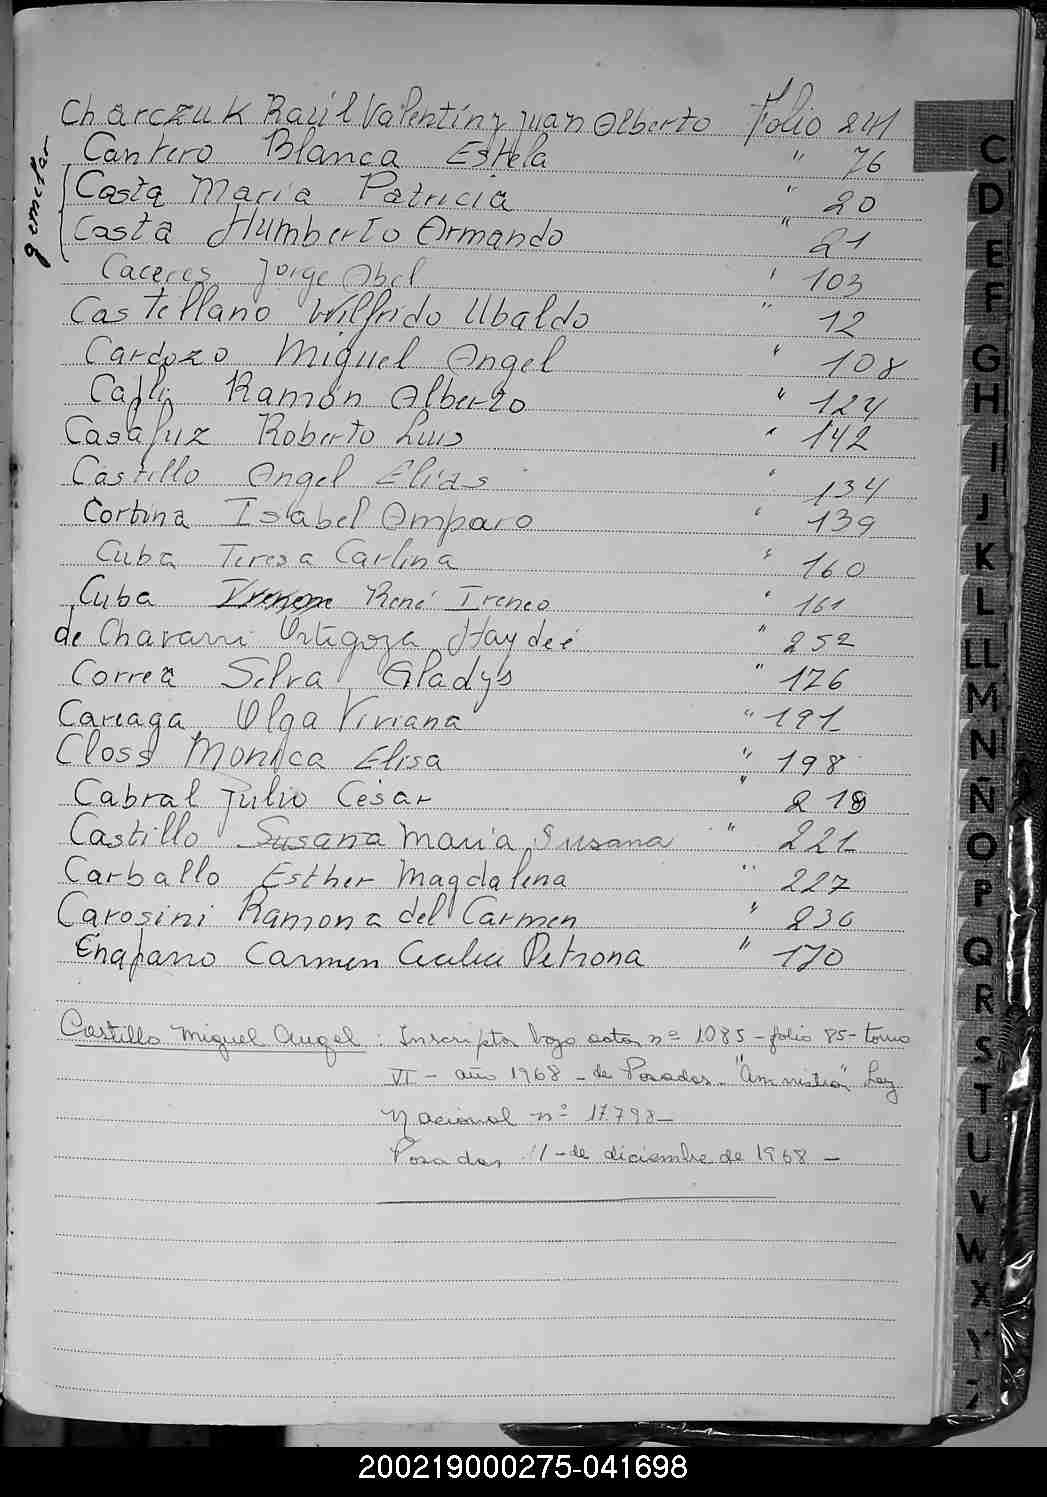 Charczuk Raúl Valentín y Juan Alberto Folio 241
Cantero Blanca Estela " 76
gemelar
Costa María Patricia " 20
Costa Humberto Armando " 21
Caceres Jorge Abel " 103
Castellano Wilfrido Ubaldo " 12
Cardozo Miguel Angel " 108
Ramón Alberto " 124
Casafuz Roberto Luis " 142
Castillo Angel Elías " 134
Cortina Isabel Amparo " 139
Cuba Teresa Carlina " 160
Cuba René Ireneo " 161
de Chavarri Ortigoza Haydeé " 252
Correa Selva Gladys " 176
Careaga Olga Viviana " 191
Closs Monica Elisa " 198
Cabral Julio Cesar " 218
Castillo Susana María Susana " 221
Carballo Esther Magdalena " 227
Carosini Ramona del Carmen " 230
Chaparro Carmen Cecilia Petrona " 170
Castillo Miguel Angel : Inscripto bajo acta nº 1085 - folio 85 - tomo
VI - año 1968 - de Posadas - "Amnistía" Ley
Nacional nº 17798 -
Posadas 11 - de diciembre de 1968 -
C
D
E
F
G
H
I
J
K
L
LL
M
N
Ñ
O
P
Q
R
S
T
U
V
W
X
Y
Z
200219000275-041698